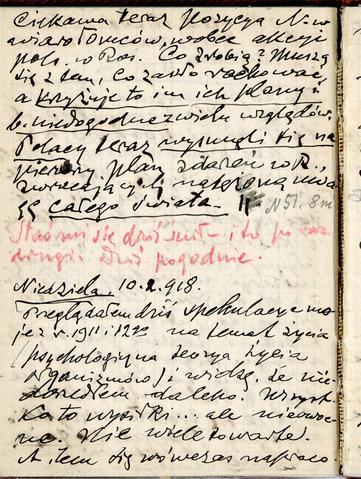 Ciekawa teraz pozycja N-w
wiarołomców, wobec akcji
pol. w Ros. Co zrobią? Muszą
się z tem, co zaszło rachować,
a krzyżuje to im ich plany i
b. niedogodne z wielu względów.
Polacy teraz wysunęli się na
pierwszy plan zdarzeń w R.,
zwracających natężoną uwa
gę całego świata. N 51. 8m
Staśmi się dziś i to po raz
drugi. Dziś pogodnie.
Niedziela, 10.2.918.
Przeglądałem dziś spekulacje mo
je z r. 1911 i 12 na temat życia
(psychologiczna teorya życia
organizmów) i widzę, że nie
doszedłem daleko. Wszyst
ko to wysiłki... ale nieowoc
ne. Nie wiele to warte.
A tem się wówczas napraco